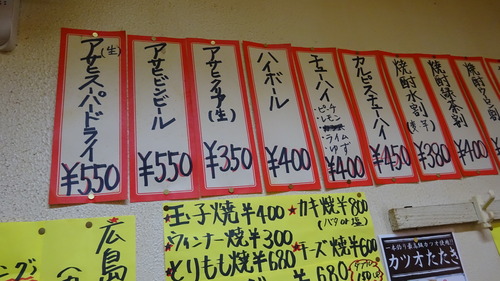 アサヒスーパードライ(生)
¥550
アサヒビンビール
¥550
アサヒクリア(生)
¥350
ハイボール
¥400
チューハイ
・ピーチ
・レモン
・ライム
・ゆず
¥400
カルピスチューハイ
¥450
焼酎水割
(麦・芋)
¥380
焼酎緑茶割
¥400
玉子焼¥400
★カキ焼¥800
(バタor塩)
ウィンナー焼¥300
★チーズ焼¥600
とりもも焼¥680
¥680
広島
一本釣り藁焼カツオ使用!!
カツオたたき